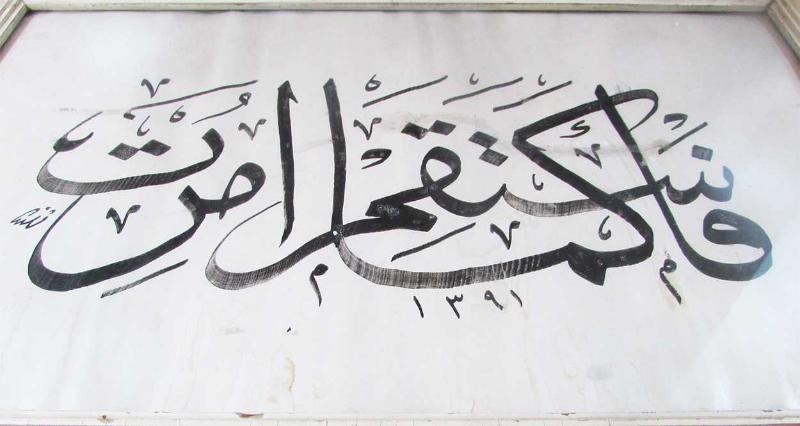 فاستقم كما أمرت
١٣٩١